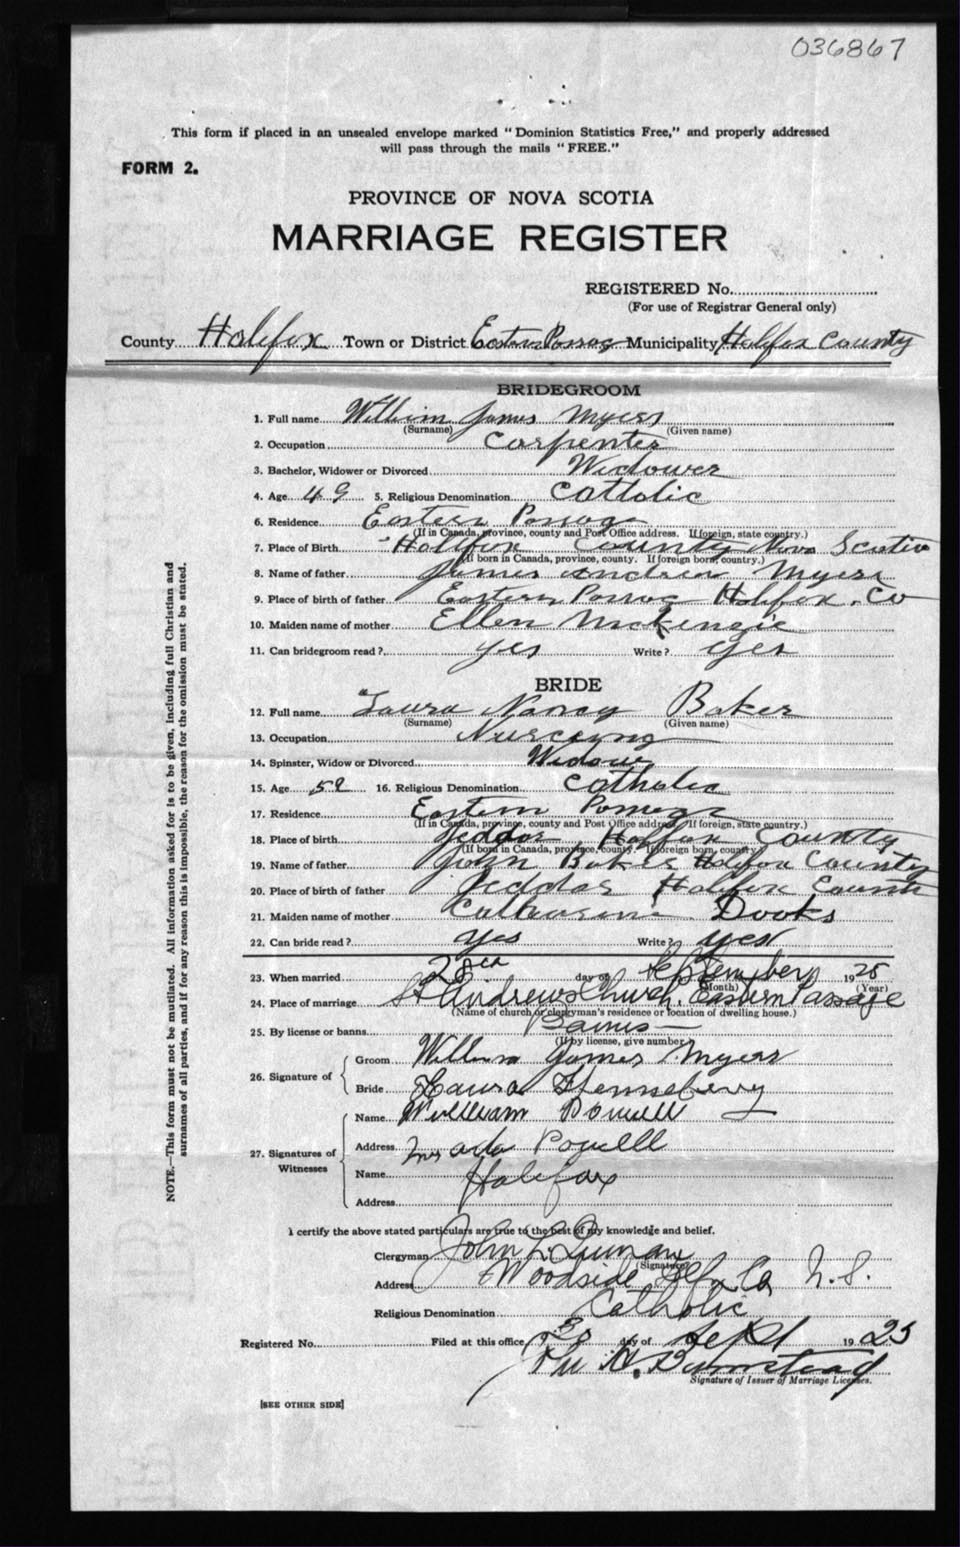 036867
This form if placed in an unsealed envelope marked "Dominion Statistics Free," and properly addressed
will pass through the mails "FREE."
FORM 2.
PROVINCE OF NOVA SCOTIA
MARRIAGE REGISTER
REGISTERED No.
(For use of Registrar General only)
County Halifax Town or District Eastern Passag Municipality Halifax County
BRIDEGROOM
1. Full name William James Myers
(Surname) (Given name)
2. Occupation Carpenter
3. Bachelor, Widower or Divorced Widower
4. Age 49 5. Religious Denomination Cattolic
6. Residence Eastern Passage
(If in Canada, province, county and Post Office address. If foreign, state country.)
7. Place of Birth Halifax County Nova Scotia
(If born in Canada, province, county. If foreign born, country.)
8. Name of father James Andrew Myers
9. Place of birth of father Eastern Passag Halifax. Co
10. Maiden name of mother Ellen McKenzie
11. Can bridegroom read? yes Write? yes
BRIDE
12. Full name Laura Nancy Baker
(Surname) (Given name)
13. Occupation
14. Spinster, Widow or Divorced Widow
15. Age 52 16. Religious Denomination Catholic
17. Residence Eastern Passage
(If in Canada, province, county and Post Office address. If foreign, state country.)
18. Place of birth Jeddor Halifax County
(If born in Canada, province, county. If foreign born, country.)
19. Name of father John Baker Halifax County
20. Place of birth of father Jeddor Halifax County
21. Maiden name of mother Dooks
22. Can bride read? yes Write? yes
23. When married 28th day of September 1925
(Month) (Year)
24. Place of marriage St Andrews Church, Eastern Passage
(Name of church or clergyman's residence or location of dwelling house.)
25. By license or banns Banns
(If by license, give number.)
26. Signature of Groom William James Myers
Bride Laura Henneberry
27. Signatures of Witnesses
Name William Powell
Address Mrs Ada Powell
Name Halifax
Address
I certify the above stated particulars are true to the best of my knowledge and belief.
Clergyman John L Quinan
(Signature)
Address Woodside Hfx Co N.S.
Religious Denomination Catholic
Registered No. Filed at this office 30 day of Sept 1925
H. Bumstead
Signature of Issuer of Marriage Licenses.
[SEE OTHER SIDE]
NOTE.—This form must not be mutilated. All information asked for is to be given, including full Christian and
surnames of all parties, and if for any reason this is impossible, the reason for the omission must be stated.